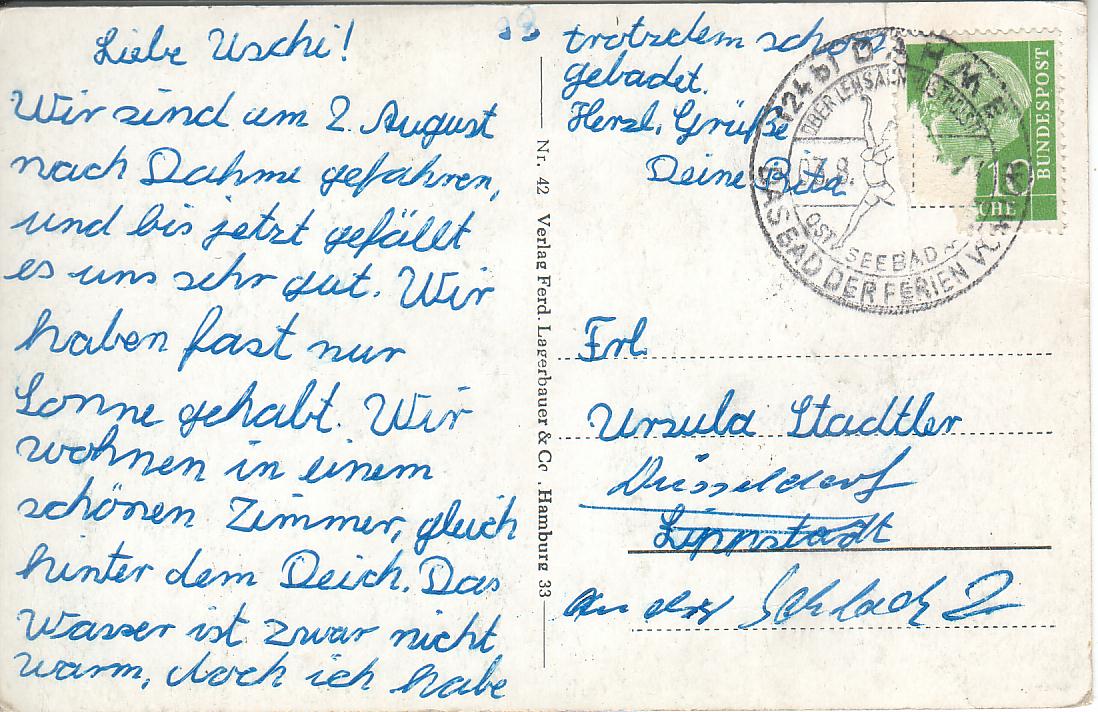 Liebe Uschi!
Wir sind am 2. August
nach Dahme gefahren,
und bis jetzt gefällt
es uns sehr gut. Wir
haben fast nur
Sonne gehabt. Wir
wohnen in einem
schönen Zimmer, gleich
hinter dem Deich. Das
Wasser ist zwar nicht
warm, doch ich habe
trotzdem schon
gebadet.
Herzl. Grüße
Deine
Nr. 42 Verlag Ferd. Lagerbauer & Co., Hamburg 33
(24b) DAHME
ÜBER LENSAHN
OSTSEEBAD
DAS BAD DER FERIEN
BUNDESPOST
10
Frl.
Ursula Stadtler
Düsseldorf
Lippstadt
an der